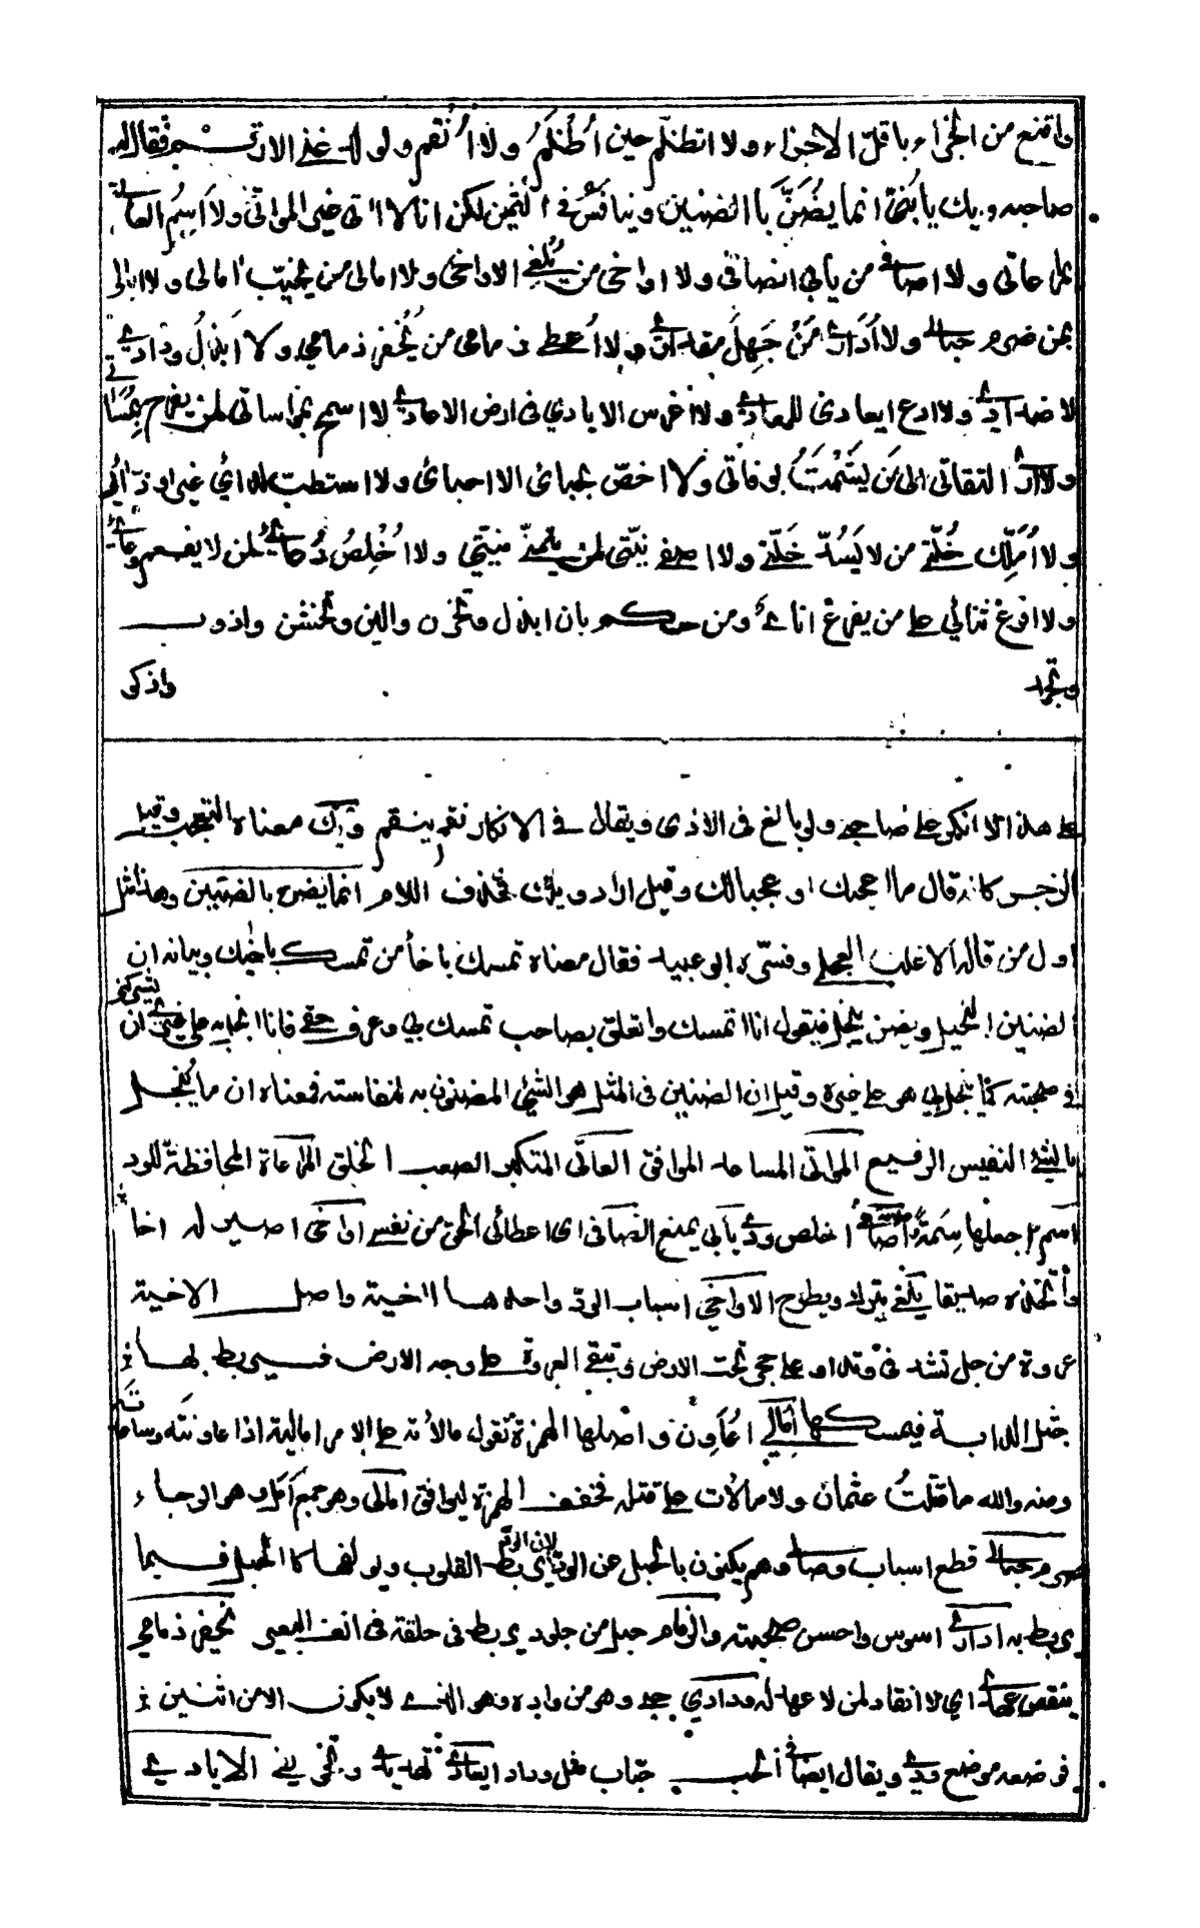 واقنع من الجزاء باقل الاجزاء ولا اتظلم حين أُظلَمُ ولا أنقم ولو لدغني الارقم فقال له
صاحبه ويك يا بُنيّ انما يُضَنُّ بالضنين ويُنافَسُ في الثمين لكن انا لا اتى غير المواتي ولا اسِمُ العاتي
بمراعاتي ولا اصافي من يأبى انصافي ولا اواخي من يُلغي الاواخي ولا امالي من يخيّب امالي ولا ابالي
بمن صرم حبالي ولا أُدَاري مَن جَهِلَ مقداري ولا أُعطي زمامي من يُخفر ذمامي ولا ابذلُ ودادي
لاضدادي ولا ادع ايعادي للمعادي ولا اغرس الايادي في ارض الاعادي لا اسمح بمواساتي لمن يفرح بمسآتي
ولا ارى التفاتي الى من يَشْمَتُ بوفاتي ولا اخصّ بحبائي الا احبائي ولا استطب لدائي غير اودّائي
ولا أُملّك خُلّتي من لا يَسُدّ خَلّتي ولا اصفي نيّتي لمن يتمنّى منيّتي ولا أُخْلِصُ دُعائي لمن لا يفعم وعائي
ولا افرغ ثنائي على من يفرغ انائي ومن حكم بان ابذل وتخزن والين وتخشن واذوب
وتجمد واذكو
على هذا الا انكر على صاحبي ولو بالغ في الاذى ويقال في الانكار نقم ينقم ويك معناه التعجب وقيل
الزجر كانه قال ما اعجبك او عجبا لك وقيل اراد ويلك فحذف اللام انما يضن بالضنين وهذا مثل
اول من قاله الاغلب العجلي وفسّره ابو عبيد فقال معناه تمسك باخاء من تمسك باخيك وبيانه ان
الضنين البخيل ويضن يبخل فيقول انا اتمسك واتعلق بصاحب تمسك بي وعرف حقي فانا ابخل به على غيري ان يشركني
في صحبته كما يبخل بي هو على غيره وقيل ان الضنين في المثل هو الشيء المضنون به لنفاسته فمعناه ان ما يُبخل
بالشيء النفيس الرفيع المواتي المساعد الموافق العاتي المتكبر الصعب الخلق المراعاة المحافظة للود
اسم اجعلها سِمَةً اصافي اخلص ودي يأبى يمنع انصافي اى اعطائي الحق من نفسه اواخي اصير له اخا
واتخذه صديقا يلغي يترك ويطرح الاواخي اسباب الود واحدها اخية واصل الاخية
عروة من حبل تشد في وتد او على حجر تحت الارض وتبقى العروة على وجه الارض فيربط بها
حبل الدابة فيمسكها أمالي أعاون واصلها الهمزة تقول مالأته على الامر امالية اذا عاونته وساعدته
ومنه والله ما قتلتُ عثمان ولا مالأت على قتله فخفف الهمزة ليوافق امالى وهو جمع امل وهو الرجاء
صرم حبالي قطع اسباب وصالي وهم يكنون بالحبل عن الود لان الود يربط القلوب ويولفها كالحبل فيما
يربط به اداري اسوس واحسن صحبته والزمام حبل من جلود يربط في حلقة في انف البعير يخفر ذمامي
ينقض عهدي اي لا انقاد لمن لا عهد له ودادي حبي وهو من واده وهو الذي لا يكون الا من اثنين
فوضعه موضع ودي ويقال ايضا في الحب حباب مثل وداد ايعادي تهديدي وتخويفي الايادي